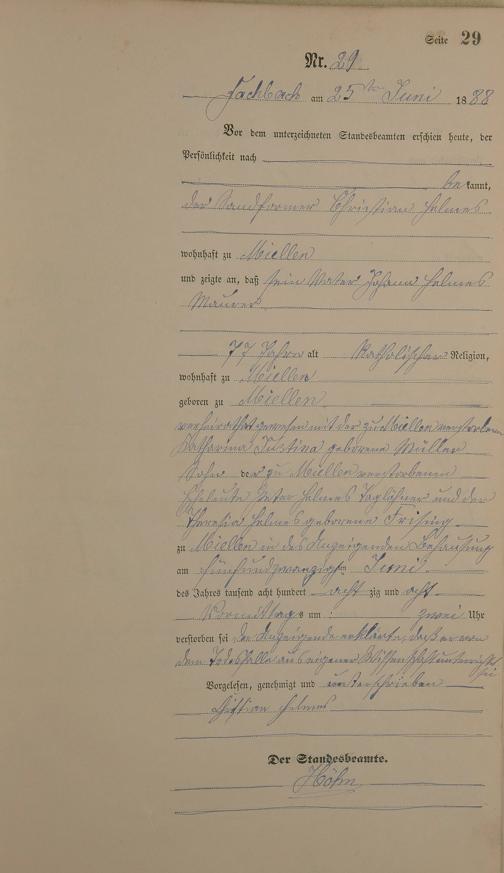 Seite 29
Nr. 29.
Fachbach am 25ten Juni 1888
Vor dem unterzeichneten Standesbeamten erschien heute, der
Persönlichkeit nach
bekannt,
der Sandformer Christian Helmes
wohnhaft zu Miellen
und zeigte an, daß sein Vater Johann Helmes
Maurer
77 Jahre alt Katholischer Religion,
wohnhaft zu Miellen
geboren zu Miellen
verheirathet gewesen mit der zu Miellen verstorbenen
Katharina Justina geborene Müller
Sohn der zu Miellen verstorbenen
Eheleute Peter Helmes Taglöhner und der
Theresia Helmes geborene Frising
zu Miellen in des Anzeigenden Behausung
am fünfundzwanzigsten Juni
des Jahres tausend acht hundert acht zig und acht
Vormittags um zwei Uhr
verstorben sei der Anzeigende erklärte, daß er von
dem Todesfalle aus eigener Wissenschaft unterrichtet
sei
Vorgelesen, genehmigt und unterschrieben
Christian Helmes
Der Standesbeamte.
Höhn